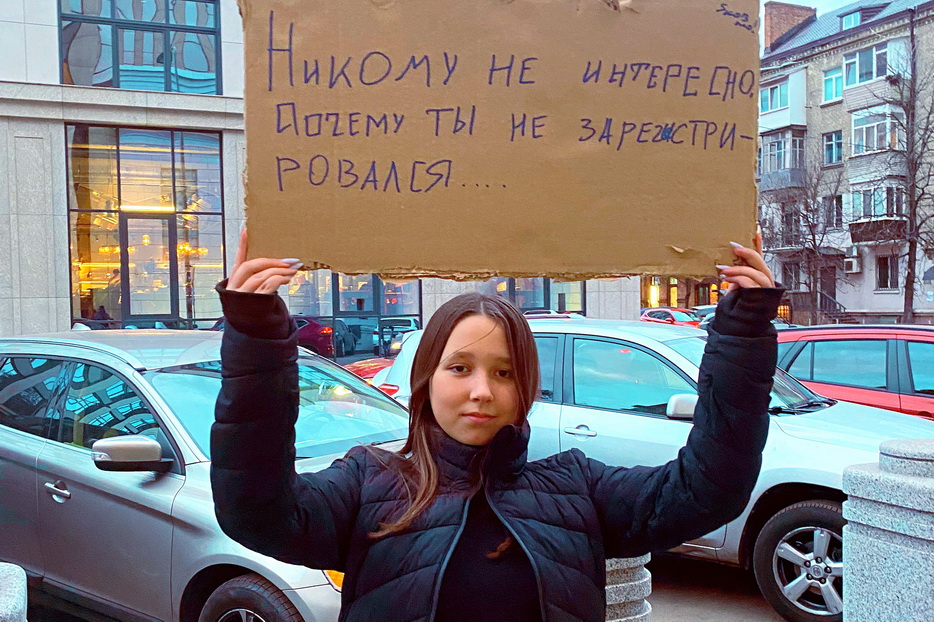 Никому не интересно,
Почему ты не зарегистри-
ровался....